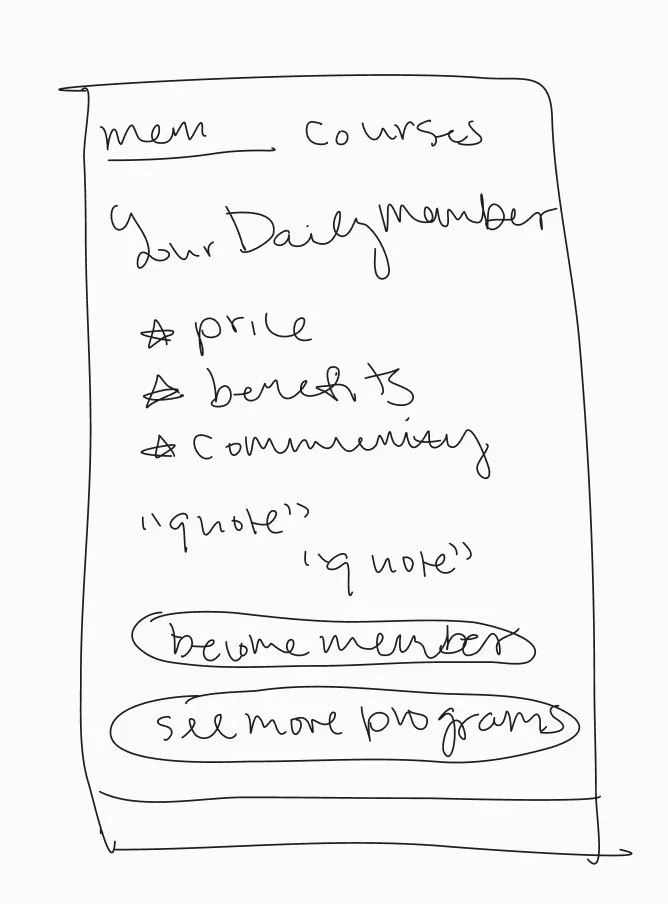 mem courses
Your Daily Member
price
benefits
community
"quote"
"quote"
become member
see more programs